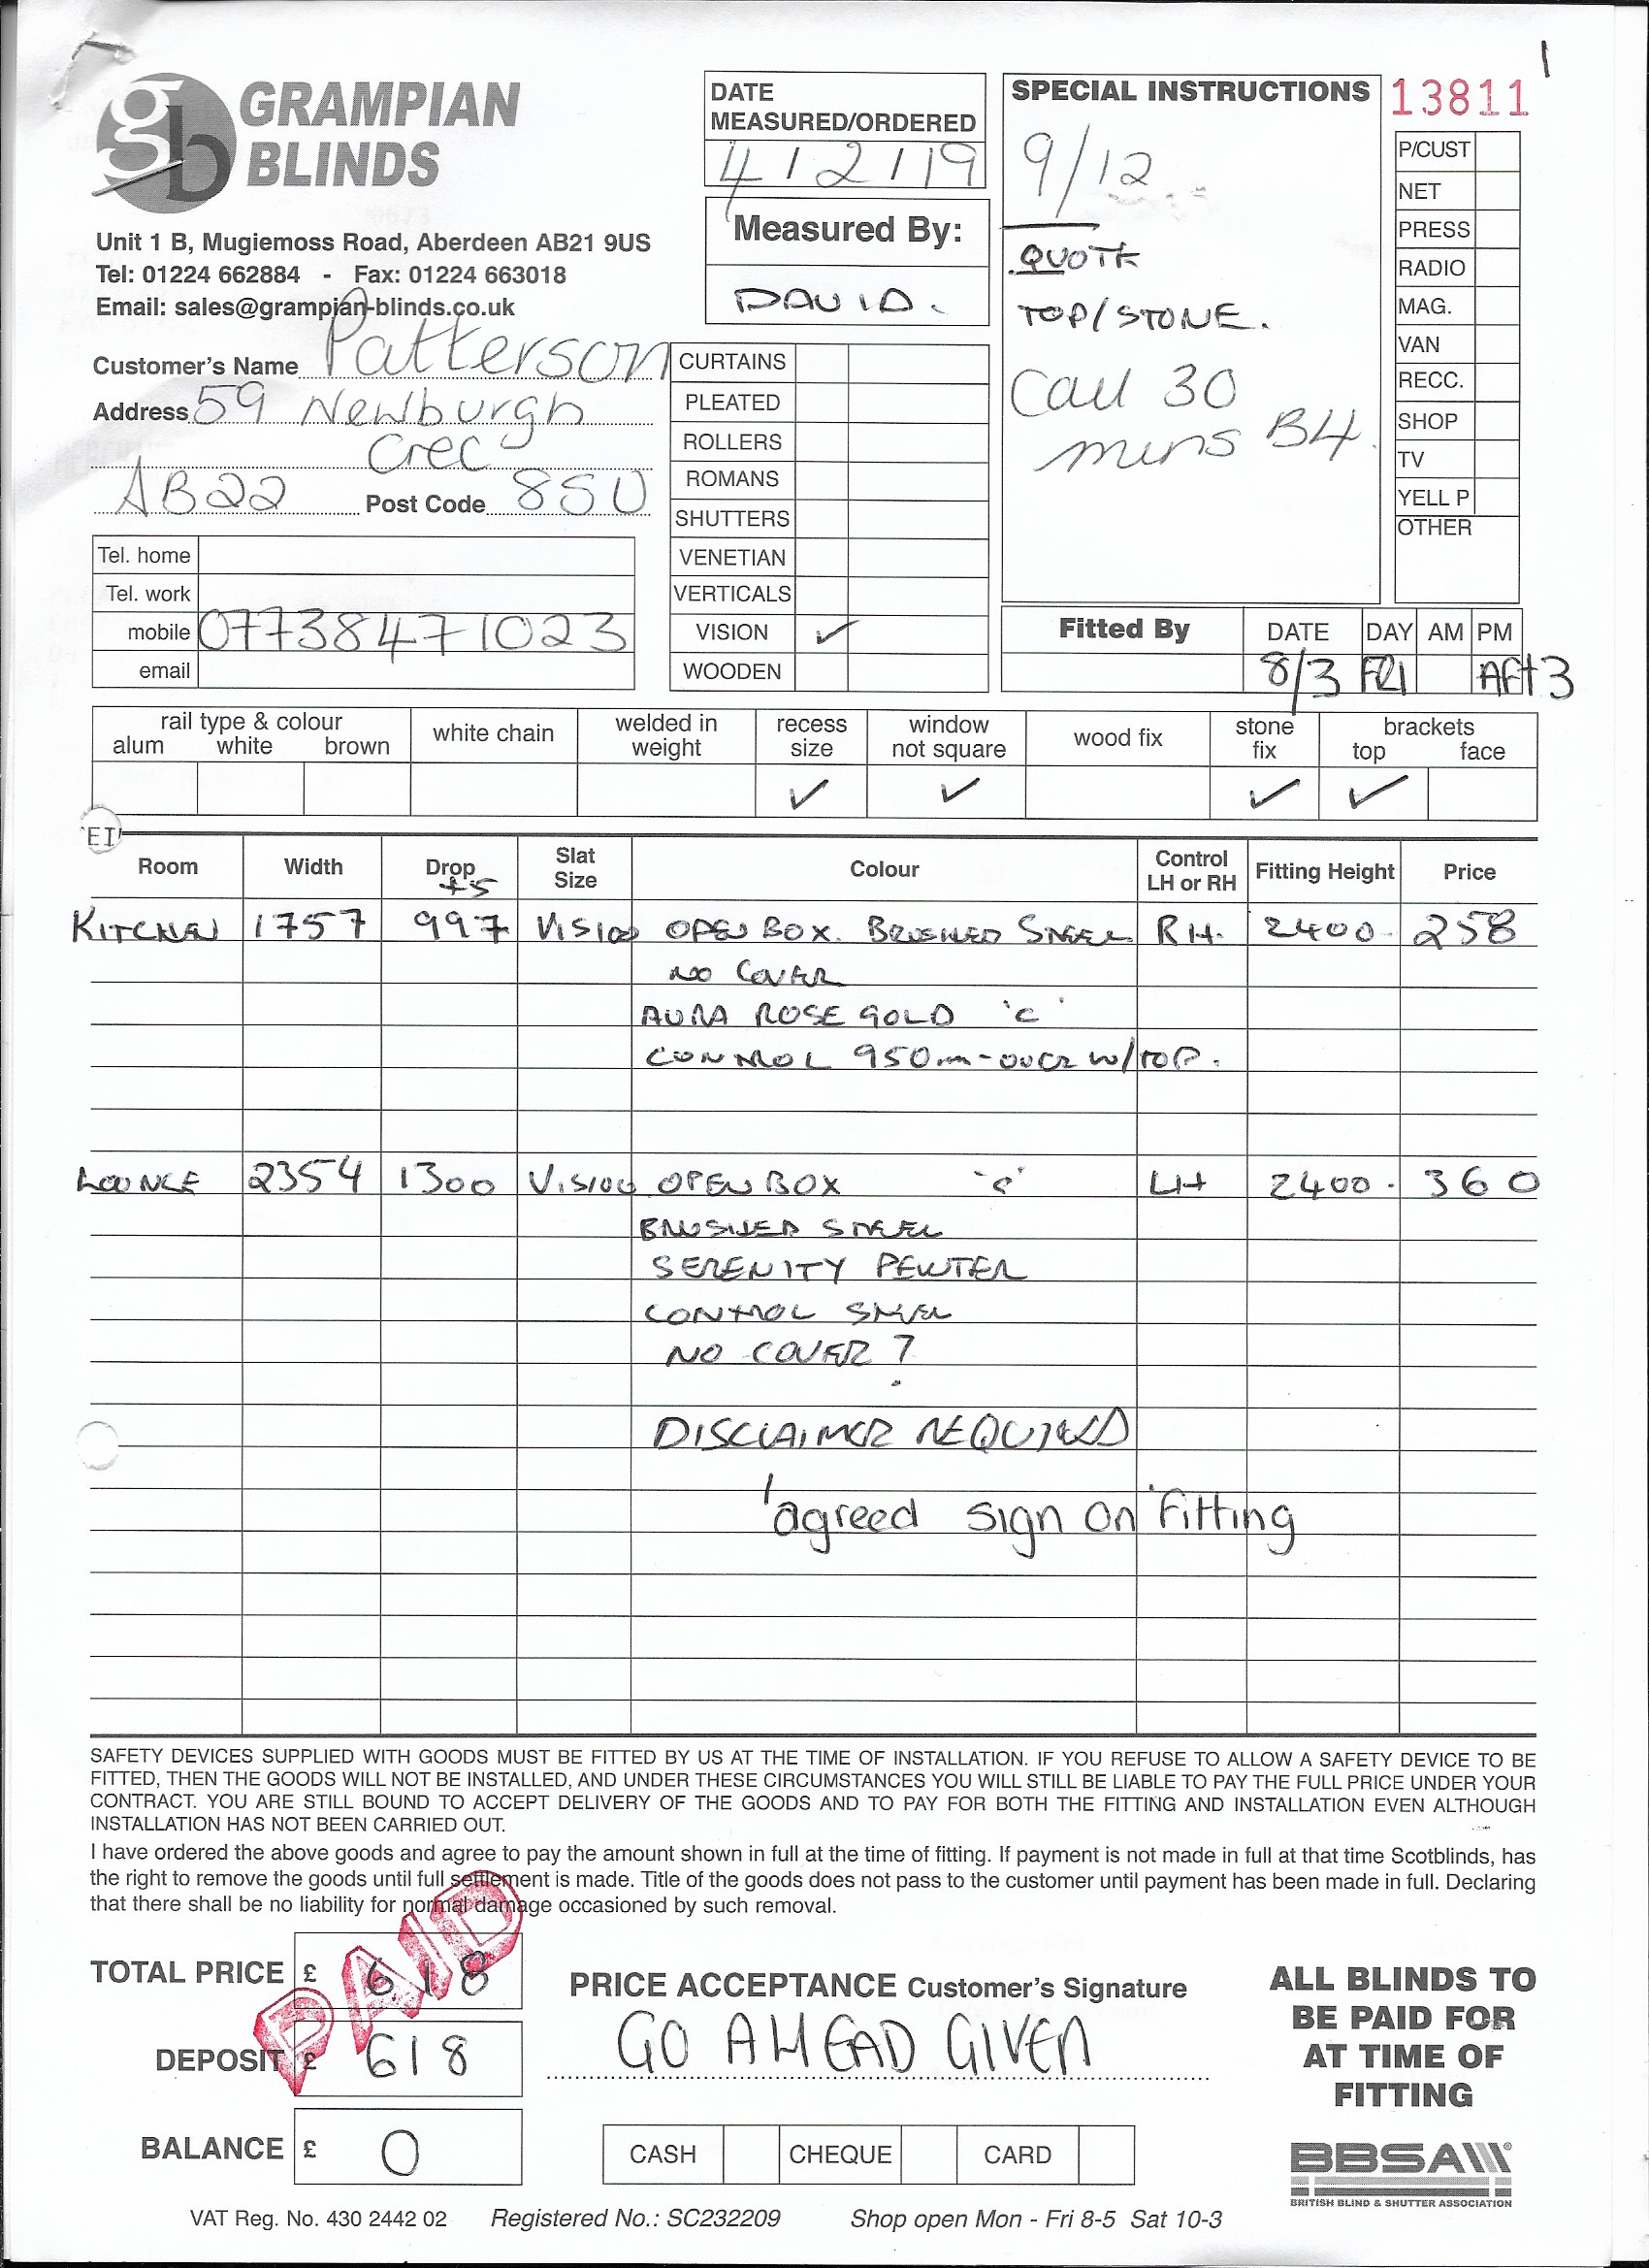 1
GRAMPIAN
BLINDS
gb
Unit 1 B, Mugiemoss Road, Aberdeen AB21 9US
Tel: 01224 662884 - Fax: 01224 663018
Email: sales@grampian-blinds.co.uk
Customer's Name Patterson
Address 59 Newburgh
Crec
AB22 Post Code 8SU
Tel. home
Tel. work
mobile 07738471023
email
DATE
MEASURED/ORDERED
4/2/19
Measured By:
DAVID.
CURTAINS
PLEATED
ROLLERS
ROMANS
SHUTTERS
VENETIAN
VERTICALS
VISION ✓
WOODEN
SPECIAL INSTRUCTIONS
9/12
QUOTE
TOP/STONE.
Call 30
mins B4.
13811
P/CUST
NET
PRESS
RADIO
MAG.
VAN
RECC.
SHOP
TV
YELL P
OTHER
Fitted By DATE DAY AM PM
8/3 FRI Aft 3
rail type & colour white chain welded in weight recess size window not square wood fix stone fix brackets
alum white brown top face
✓ ✓ ✓ ✓
EI
Room Width Drop Slat Size Colour Control LH or RH Fitting Height Price
+5
KITCHEN 1757 997 VISION OPEN BOX. BRUSHED STEEL RH. 2400 258
NO COVER
AURA ROSE GOLD 'C'
CONTROL 950m-OVER W/TOP.
LOUNGE 2354 1300 VISION OPEN BOX 'C' LH 2400. 360
BRUSHED STEEL
SERENITY PEWTER
CONTROL STEEL
NO COVER ?
DISCLAIMER REQUIRED
'agreed sign on fitting
SAFETY DEVICES SUPPLIED WITH GOODS MUST BE FITTED BY US AT THE TIME OF INSTALLATION. IF YOU REFUSE TO ALLOW A SAFETY DEVICE TO BE
FITTED, THEN THE GOODS WILL NOT BE INSTALLED, AND UNDER THESE CIRCUMSTANCES YOU WILL STILL BE LIABLE TO PAY THE FULL PRICE UNDER YOUR
CONTRACT. YOU ARE STILL BOUND TO ACCEPT DELIVERY OF THE GOODS AND TO PAY FOR BOTH THE FITTING AND INSTALLATION EVEN ALTHOUGH
INSTALLATION HAS NOT BEEN CARRIED OUT.
I have ordered the above goods and agree to pay the amount shown in full at the time of fitting. If payment is not made in full at that time Scotblinds, has
the right to remove the goods until full settlement is made. Title of the goods does not pass to the customer until payment has been made in full. Declaring
that there shall be no liability for normal damage occasioned by such removal.
TOTAL PRICE £ 618
DEPOSIT £ 618
BALANCE £ 0
PAID
PRICE ACCEPTANCE Customer's Signature
GO AHEAD GIVEN
CASH CHEQUE CARD
ALL BLINDS TO
BE PAID FOR
AT TIME OF
FITTING
BBSA
BRITISH BLIND & SHUTTER ASSOCIATION
VAT Reg. No. 430 2442 02 Registered No.: SC232209 Shop open Mon - Fri 8-5 Sat 10-3